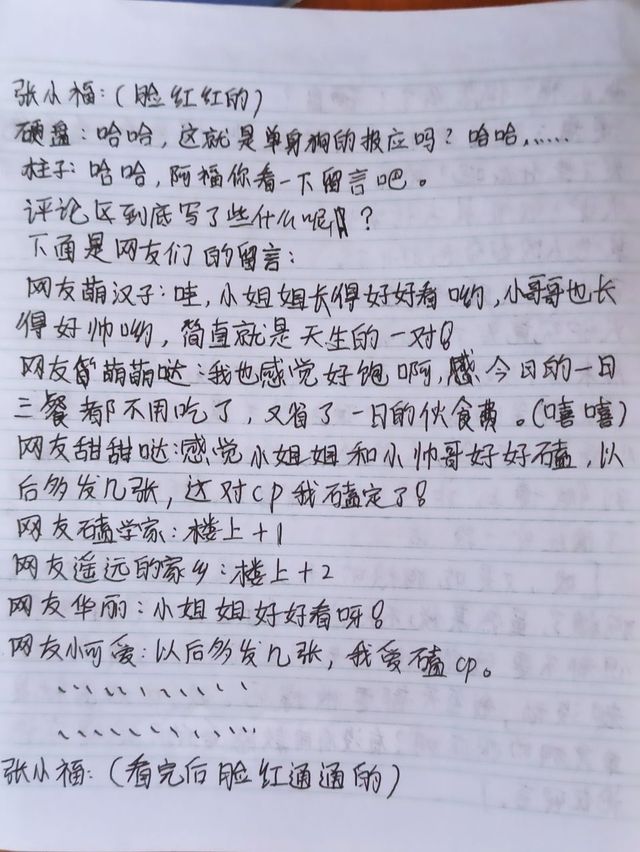 张小福:(脸红红的)
硬盘:哈哈,这就是单身狗的报应吗?哈哈,……
柱子:哈哈,阿福你看一下留言吧。
评论区到底写了些什么呢?
下面是网友们的留言:
网友萌汉子:哇,小姐姐长得好好看哟,小哥哥也长
得好帅哟,简直就是天生的一对!
网友萌萌哒:我也感觉好饱啊,感今日的一日
三餐都不用吃了,又省了一日的伙食费。(嘻嘻)
网友甜甜哒:感觉小姐姐和小帅哥好好磕,以
后多发几张,这对cp我磕定了!
网友磕学家:楼上+1
网友遥远的家乡:楼上+2
网友华丽:小姐姐好好看呀!
网友小可爱:以后多发几张,我爱磕cp。
、、、、、、、、、、、
、、、、、、、、、、、、
张小福:(看完后脸红通通的)